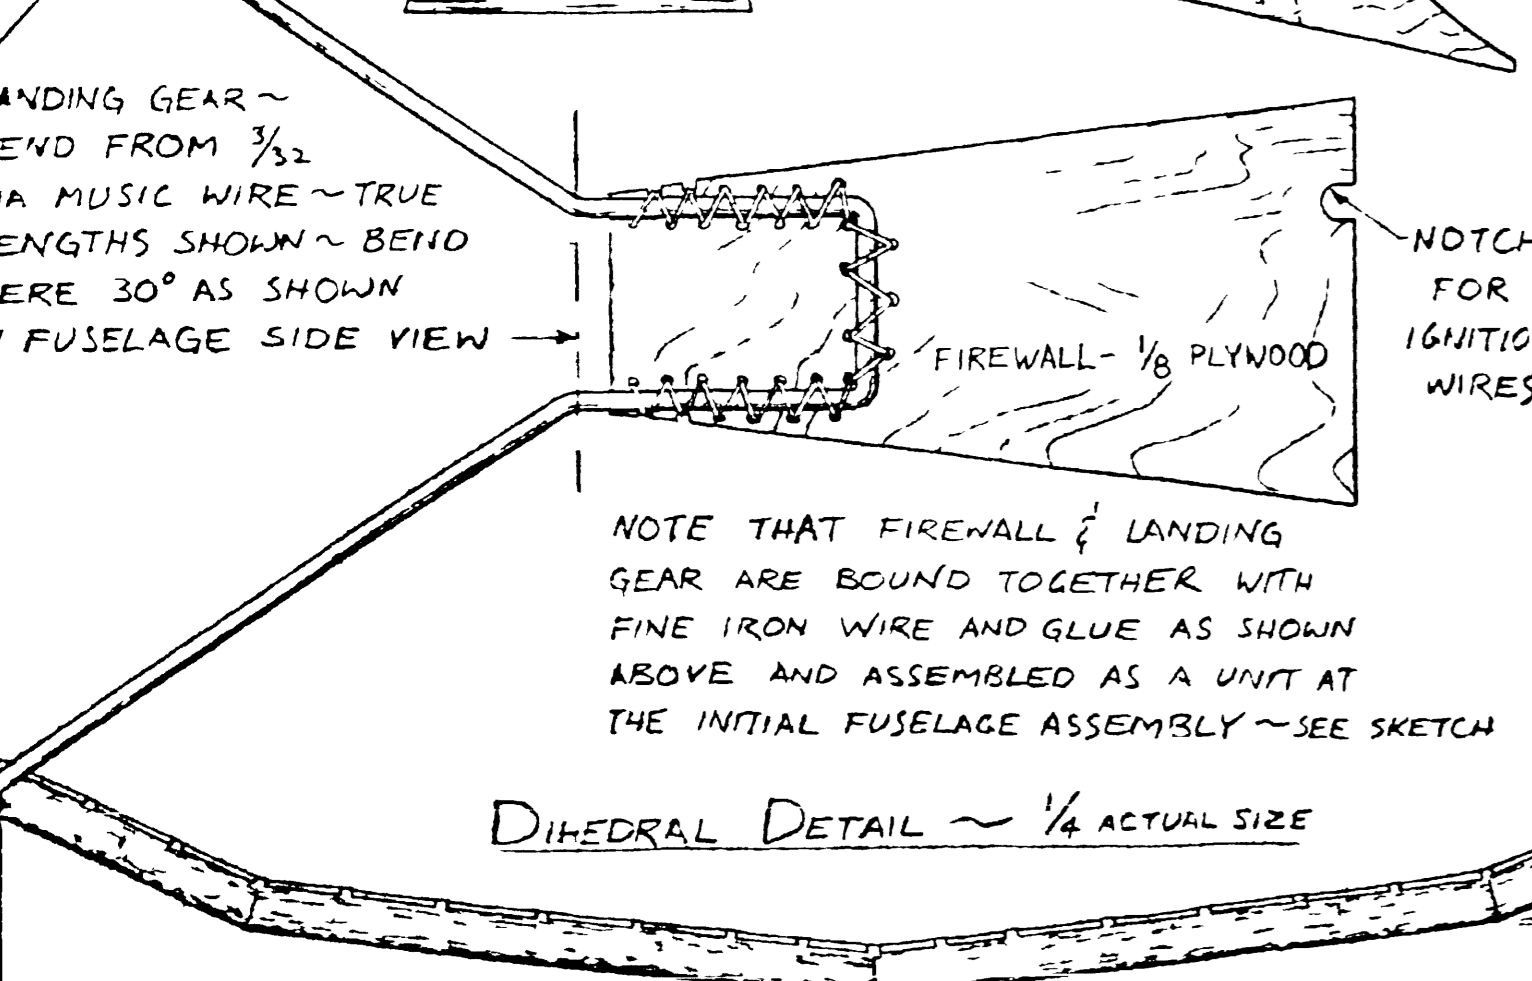 ANDING GEAR~
END FROM 3/32
IA MUSIC WIRE ~ TRUE
ENGTHS SHOWN ~ BEND
ERE 30° AS SHOWN
FUSELAGE SIDE VIEW
NOTCH
FOR
IGNITIO
WIRES
FIREWALL - 1/8 PLYWOOD
NOTE THAT FIREWALL & LANDING
GEAR ARE BOUND TOGETHER WITH
FINE IRON WIRE AND GLUE AS SHOWN
ABOVE AND ASSEMBLED AS A UNIT AT
THE INITIAL FUSELAGE ASSEMBLY ~ SEE SKETCH
DIHEDRAL DETAIL ~ 1/4 ACTUAL SIZE